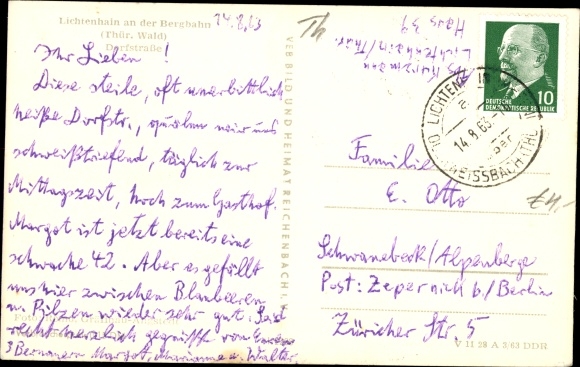 Lichtenhain an der Bergbahn
(Thür. Wald)
Dorfstraße
14.8.63
Ihr Lieben !
Diese steile, oft unerbittlich
heiße Dorfstr., quälen wir uns
schweißtriefend, täglich zur
Mittagszeit, hoch zum Gasthof.
Margot ist jetzt bereits eine
schwache 42. Aber es gefällt
uns hier zwischen Blaubeeren
u. Pilzen wieder sehr gut. Seid
recht herzlich gegrüßt von Euren
3 Bernauern Margot, Marianne u. Walter
VEB BILD UND HEIMAT REICHENBACH I. V.
Th
Lichtenhain/Thür.
Haus 39
DEUTSCHE
DEMOKRATISCHE REPUBLIK
10
14.8.63
Familie
E. Otto
Schwanebeck/Alpenberge
Post: Zepernick b/Berlin
Züricher Str. 5
V 11 28 A 3 63 DDR